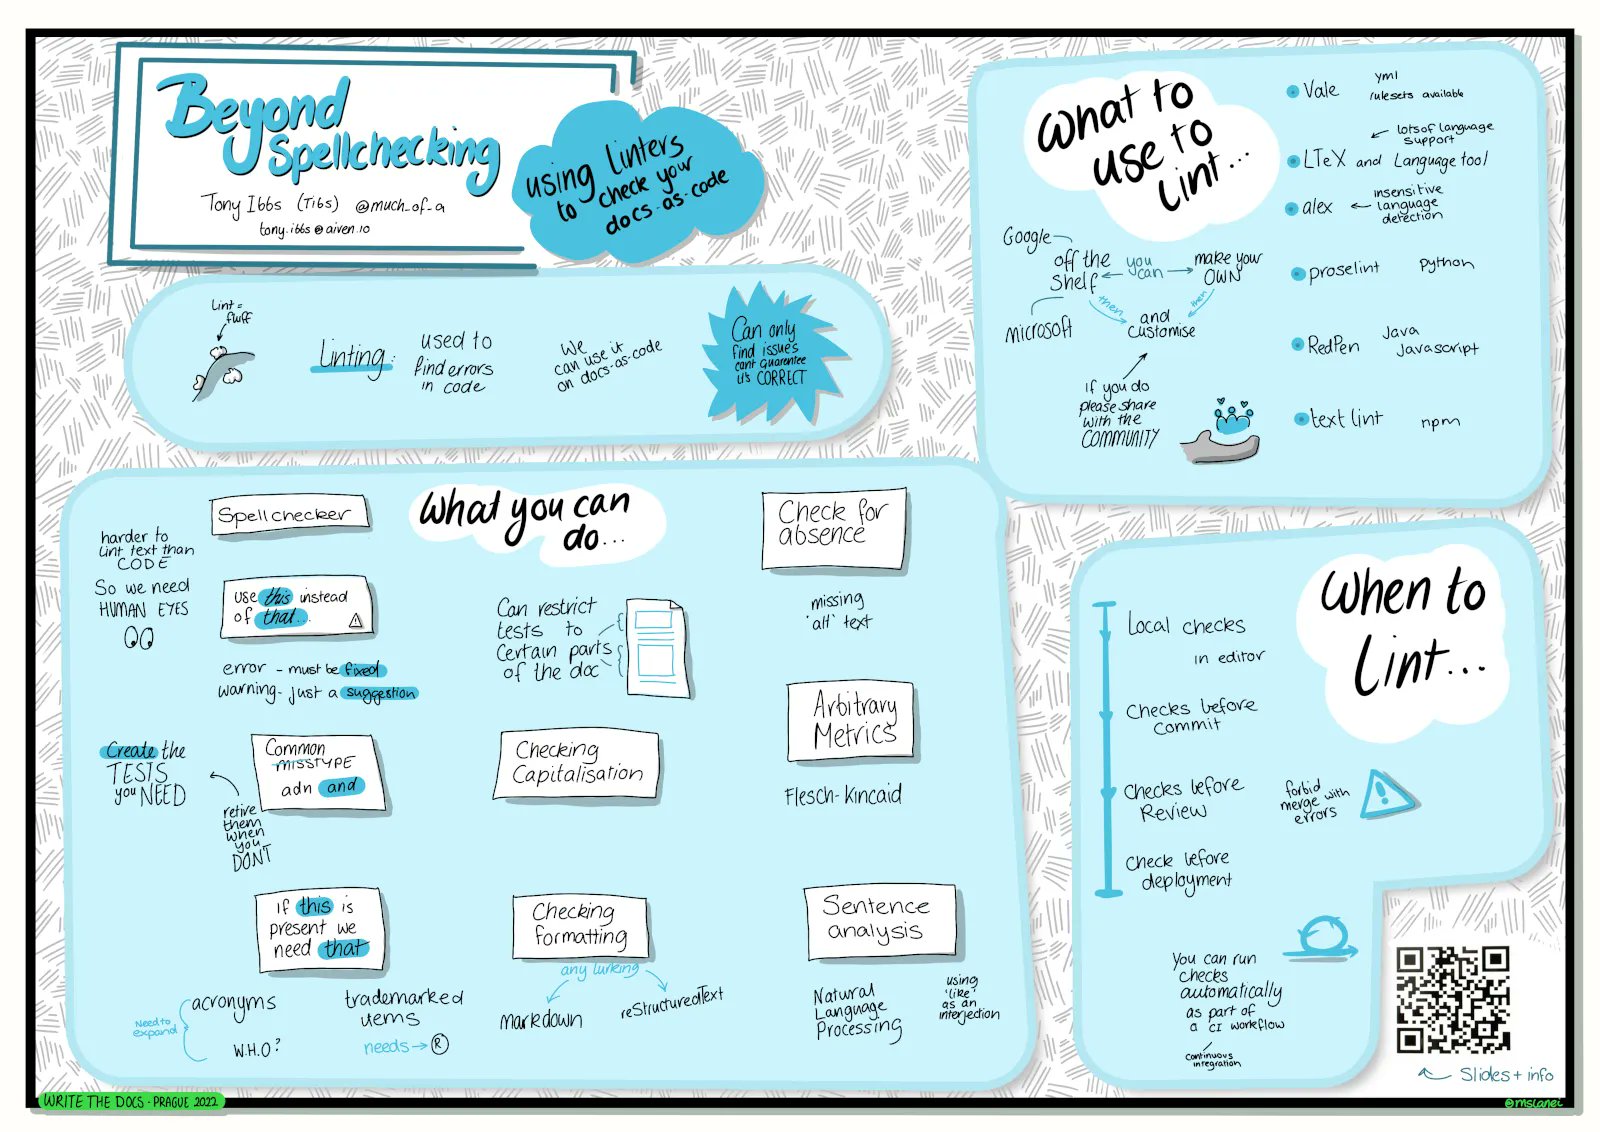 Beyond
Spellchecking
Tony Ibbs (Tibs) @much_of_a
tony.ibbs@aiven.io
using Linters
to check your
docs-as-code
Lint =
fluff
Linting:
used to
find errors
in code
We
can use it
on docs-as-code
Can only
find issues
cant guarentee
it's CORRECT
What you can
do...
harder to
lint text than
CODE
So we need
HUMAN EYES
Spellchecker
use this instead
of that...
error - must be fixed
warning - just a suggestion
Create the
TESTS
you NEED
retire
them
when
you
DON'T
Common
MISSTYPE
adn and
If this is
present we
need that
Need to
expand
acronyms
W.H.O?
trademarked
items
needs → ®
Can restrict
tests to
Certain parts
of the doc
Checking
Capitalisation
Checking
formatting
any lurking
markdown
reStructuredText
Check for
absence
missing
'alt' text
Arbitrary
Metrics
Flesch-Kincaid
Sentence
analysis
Natural
Language
Processing
using
'like'
as an
interjection
What to
use to
Lint...
Google
off the
Shelf
microsoft
you
can
make your
OWN
then
then
and
customise
If you do
please share
with the
COMMUNITY
Vale
yml
rulesets available
lots of language
support
LTeX and Language tool
alex
insensitive
language
detection
proselint
Python
RedPen
Java
Javascript
text lint
npm
When to
Lint...
Local checks
in editor
Checks before
Commit
Checks before
Review
forbid
merge with
errors
!
Check before
deployment
You can run
checks
automatically
as part of
a CI workflow
continuous
integration
Slides + info
WRITE THE DOCS · PRAGUE 2022
@mslanei